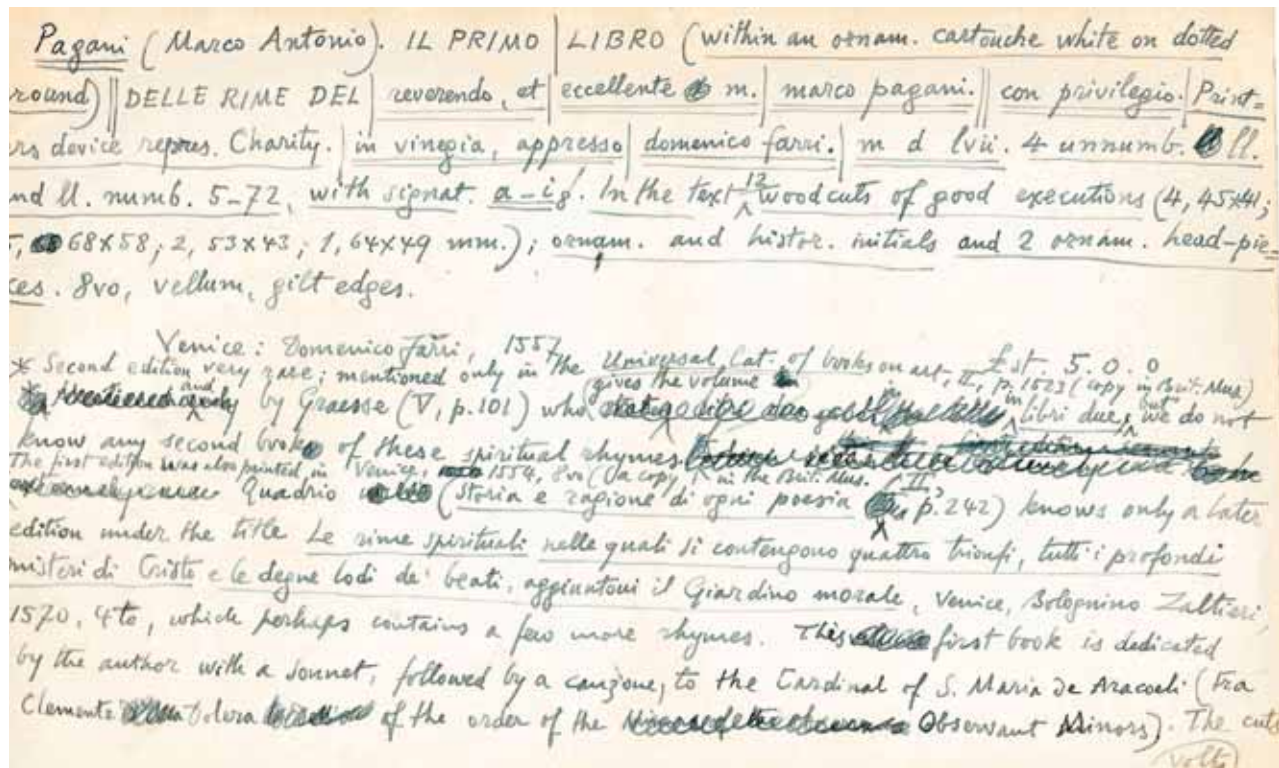 Pagani (Marco Antonio). IL PRIMO | LIBRO (within an ornam. cartouche white on dotted
round) || DELLE RIME DEL | reverendo, et | eccellente m. | marco pagani. || con privilegio. Print=
rs device repres. Charity. | in vinegia, appresso | domenico farri. | m d lvii. 4 unnumb. ll.
nd ll. numb. 5-72, with signat. a-i8. In the text 12 woodcuts of good executions (4, 45x41;
5, 68x58; 2, 53x43; 1, 64x49 mm.); ornam. and histor. initials and 2 ornam. head-pie
ces. 8vo, vellum, gilt edges.
Venice: Domenico Farri, 1557 £st. 5.0.0
* Second edition very rare; mentioned only in the Universal Cat. of books on art, II, p. 1523 (copy in Brit. Mus.)
and by Graesse (V, p.101) who gives the volume in libri due, but we do not
know any second book of these spiritual rhymes
The first edition was also printed in Venice, 1554, 8vo (a copy in the Brit. Mus.
Quadrio (Storia e ragione di ogni poesia II, p. 242) knows only a later
edition under the title Le rime spirituali nelle quali si contengono quattro trionfi, tutti i profondi
misteri di Cristo e le degne lodi de' beati, aggiuntovi il Giardino morale, Venice, Bolognino Zaltieri,
1570, 4to, which perhaps contains a few more rhymes. This first book is dedicated
by the author with a sonnet, followed by a canzone, to the Cardinal of S. Maria de Aracoeli (Fra
Clemente Dolera of the order of the Observant Minors). The cuts
(volta